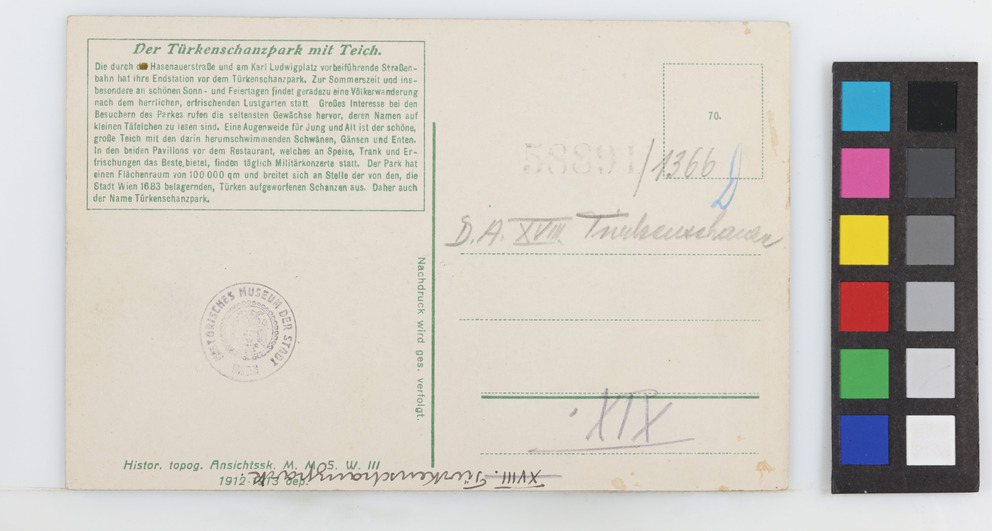 Der Türkenschanzpark mit Teich.
Die durch die Hasenauerstraße und am Karl Ludwigplatz vorbeiführende Straßen-
bahn hat ihre Endstation vor dem Türkenschanzpark. Zur Sommerszeit und ins-
besondere an schönen Sonn- und Feiertagen findet geradezu eine Völkerwanderung
nach dem herrlichen, erfrischenden Lustgarten statt Großes Interesse bei den
Besuchern des Parkes rufen die seltensten Gewächse hervor, deren Namen auf
kleinen Täfelchen zu lesen sind. Eine Augenweide für Jung und Alt ist der schöne,
große Teich mit den darin herumschwimmenden Schwänen, Gänsen und Enten.
In den beiden Pavillons vor dem Restaurant, welches an Speise, Trank und Er-
frischungen das Beste bietet, finden täglich Militärkonzerte statt. Der Park hat
einen Flächenraum von 100 000 qm und breitet sich an Stelle der von den, die
Stadt Wien 1683 belagernden, Türken aufgeworfenen Schanzen aus. Daher auch
der Name Türkenschanzpark.
70.
/1366
D.A. XVIII Türkenschanze
HISTORISCHES MUSEUM DER STADT WIEN
Nachdruck wird ges. verfolgt.
XIX
Histor. topog. Ansichtssk. M. M. S. W. III
1912-1913 dep.
XVIII. Türkenschanzpark